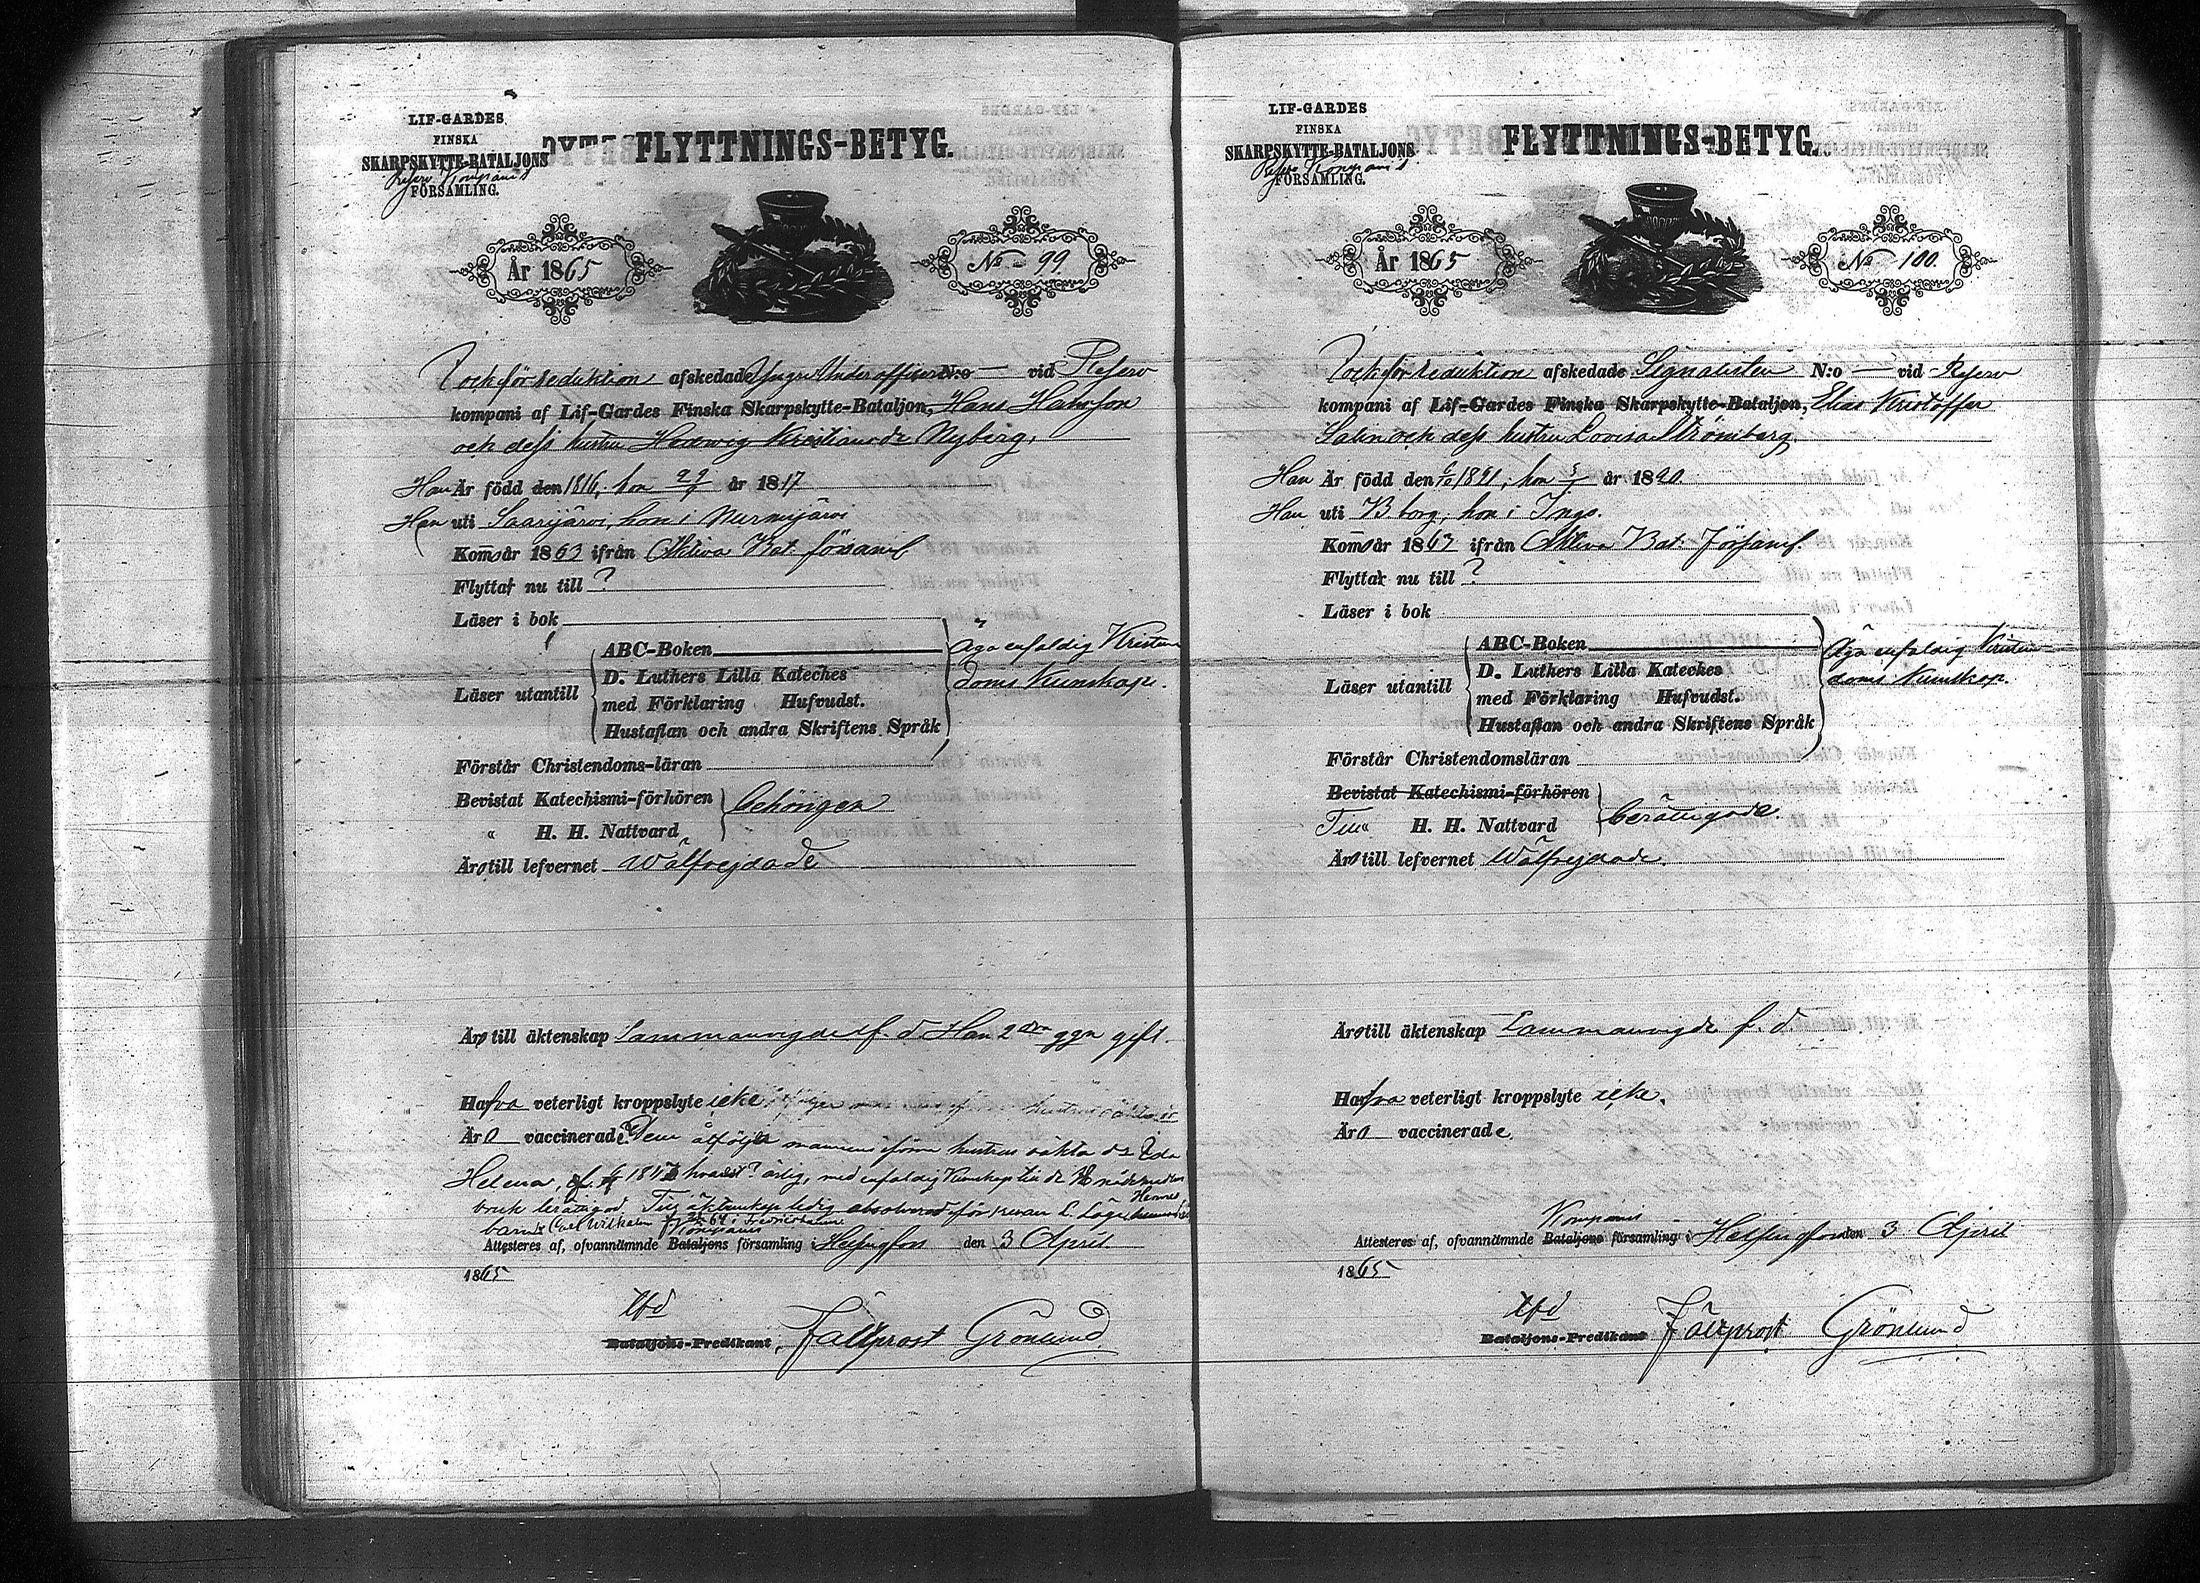 LIF-GARDES
FINSKA
SKARPSKYTTE-BATALJONS
Reserv Kompanis
FÖRSAMLING.
FLYTTNINGS-BETYG.
År 1865
No 99
och för reduktion afskedade Yngre Underofficer N:o — vid Reserv
kompani af Lif-Gardes Finska Skarpskytte-Bataljon, Hans Hansson
och dess hustru Hedwig Kristina Nyberg,
Han Är född den 1816, hon 22/9 år 1817
Han uti Saarijärvi, hon i Nurmijärvi
Komo år 1863 ifrån Aktiva Bat. församl.
Flyttar nu till ?
Läser i bok
Läser utantill
ABC-Boken
D. Luthers Lilla Kateches
med Förklaring Hufvudst.
Hustaflan och andra Skriftens Språk
Äga enfaldig Kristen
doms Kunskap.
Förstår Christendoms-läran
Bevistat Katechismi-förhören
" H. H. Nattvard
behörigen
Äro till lefvernet Wälfrejdade
Äro till äktenskap Sammanvigde f. d. Han 2dra ggn gift.
Hafva veterligt kroppslyte icke
Äro vaccinerade. Dem åtföljer mannens förra hustrus oäkta dr Ida
Helena, 184 ärlig, med enfaldig Kunskap till de H nådemedlens
bruk berättigad. Till äktenskap ledig absolverad för Hennes
barn Carl Wilhelm 64 i Fredrikshamn
Kompanis
Attesteras af, ofvannämnde Bataljons församling i Helsingfors den 3 April
1865
Bataljons-Predikant, Fältprost Grönlund
LIF-GARDES
FINSKA
SKARPSKYTTE-BATALJONS
Reserv Kompanis
FÖRSAMLING.
FLYTTNINGS-BETYG.
År 1865
No 100.
och för reduktion afskedade Signalisten N:o — vid Reserv
kompani af Lif-Gardes Finska Skarpskytte-Bataljon, Elias Kristoffer
Salin och dess hustru Lovisa Strömberg.
Han Är född den 1821, hon år 1820.
Han uti B borg, hon i Ingo.
Komo år 1863 ifrån Aktiva Bat. Församl.
Flyttar nu till ?
Läser i bok
Läser utantill
ABC-Boken
D. Luthers Lilla Kateches
med Förklaring Hufvudst.
Hustaflan och andra Skriftens Språk
Äga enfaldig Kristen
doms Kunskap.
Förstår Christendomsläran
Bevistat Katechismi-förhören
Till H. H. Nattvard
berättigade.
Äro till lefvernet Wälfrejdade.
Äro till äktenskap Sammanvigde f. d.
Hafva veterligt kroppslyte icke.
Äro vaccinerade.
Kompanis
Attesteras af, ofvannämnde Bataljons församling i Helsingfors den 3 April
1865
Bataljons-Predikant Fältprost Grönlund